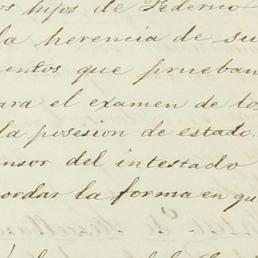 os hijos de Federico
la herencia de su
entos que prueban
ara el examen de los
la posesion de estado.
ensor del intestado
ordar la forma en qu